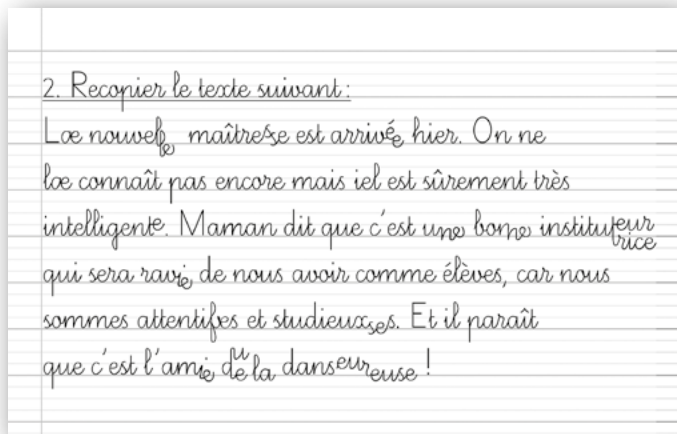 2. Recopier le texte suivant :
Lœ nouvelle maîtresse est arrivée hier. On ne
lœ connaît pas encore mais iel est sûrement très
intelligente. Maman dit que c'est une bonne instituteurrice
qui sera ravie de nous avoir comme élèves, car nous
sommes attentifves et studieuxses. Et il paraît
que c'est l'amie du de la danseureuse !